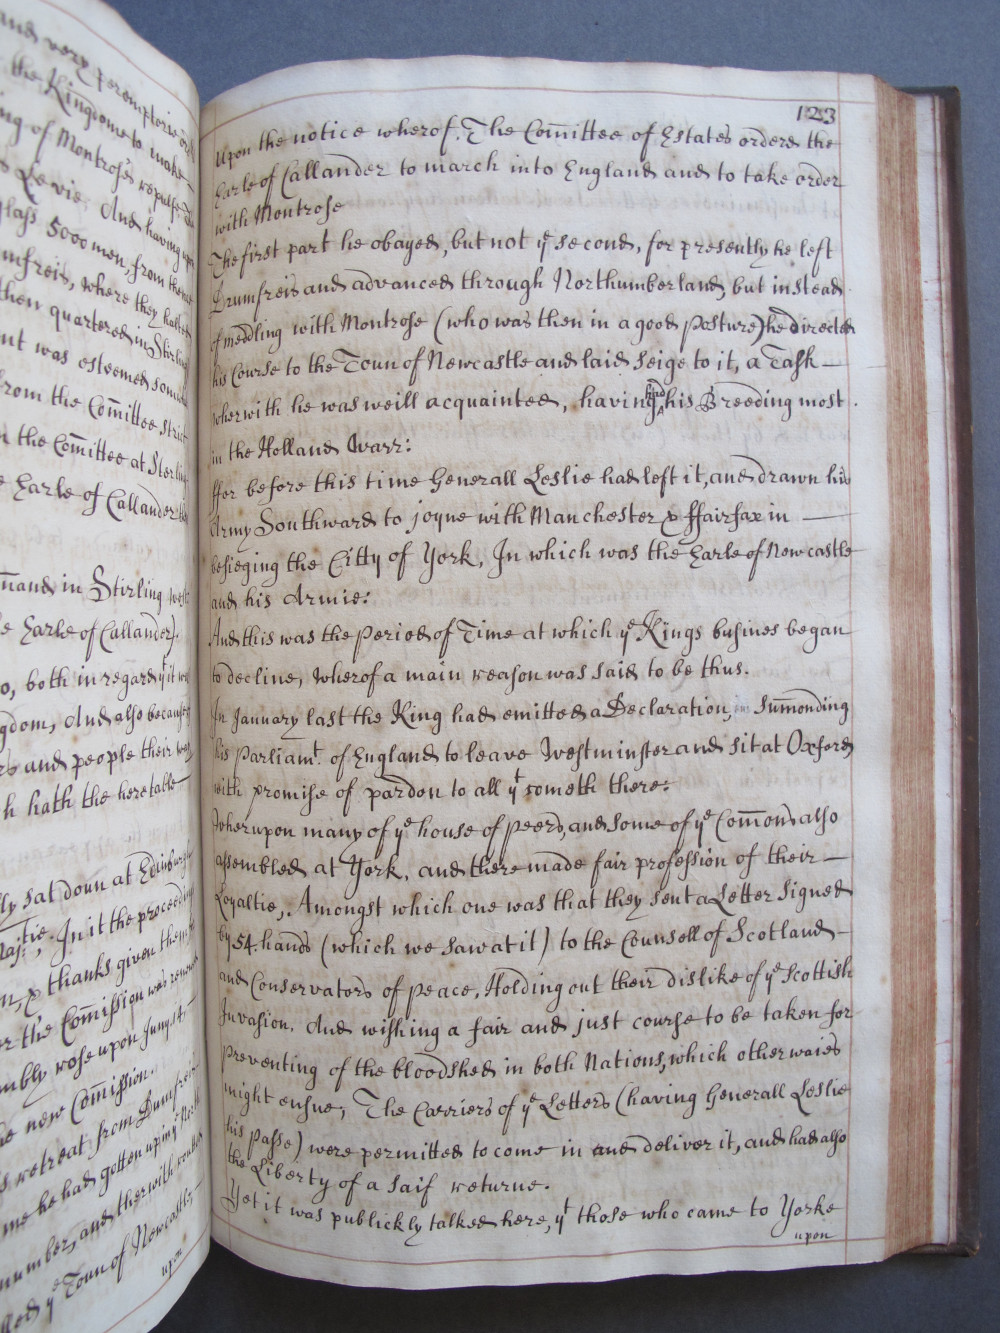 and very peremptorie
the Kingdome to make
ing of Montroses repulse
Levie, And having
5000 men, from thence
mfreis, where they halted
then quartered in Stirling
nt was esteemed som
from the Com̄ittee strict
n the Com̄ittee at Sterling
e Earle of Callander
m̄and in Stirling west
e Earle of Callander).
o, both in regard yt it
gdom, And also because
rs and people their way
h hath the heretable
ly sat doun at Edinburgh
Majtie. In it the proceedings
n, & thanks given them
er the Com̄ission was renew
mbly rose upon Juny. 14.
he new Com̄ission.
s retreat from Dumfreis
me he had gotten up in ye North
number, and therwith
led ye Toun of Newcastle,
upon
123
Upon the notice wherof. The Com̄ittee of Estates ordered the
Earle of Callander to march into England and to take order
with Montrose
The first part he obayed, but not ye second, for presently he left
Drumfreis and advanced through Northumberland, but instead
of medling with Montrose (who was then in a good posture) he directed
his Course to the Toun of Newcastle and laid seige to it, a Task
wherwith he was weill acquainted, having had his Breeding most
in the Holland Warr:
ffor before this time Generall Leslie had left it, and drawn his
Army Southward to joyne with Manchester & ffairfax in
besieging the Citty of York, In which was the Earle of Newcastle
and his Armie:
And this was the period of Time at which ye Kings busines began
to decline, wherof a main reason was said to be thus.
In January last the King had emitted a Declaration, sum̄onding
his Parliamt. of England to leave Westminster and sit at Oxford,
with promise of pardon to all yt cometh there:
Wherupon many of ye house of peers, and some of ye Com̄ons also
assembled at York, and there made fair profession of their
Loyaltie, Amongst which one was that they sent a Letter signed
by 54. hands (which we saw at it) to the Counsell of Scotland
and Conservators of peace, Holding out their dislike of ye Scottish
Invasion. And wishing a fair and just course to be taken for
preventing of the bloodshed in both Nations, which otherwaies
might ensue, The Carriers of ye Letters (having Generall Leslie
his passe) were permitted to come in and deliver it, and had also
the Liberty of a saif returne.
Yet it was publickly talked here, yt those who came to Yorke
upon